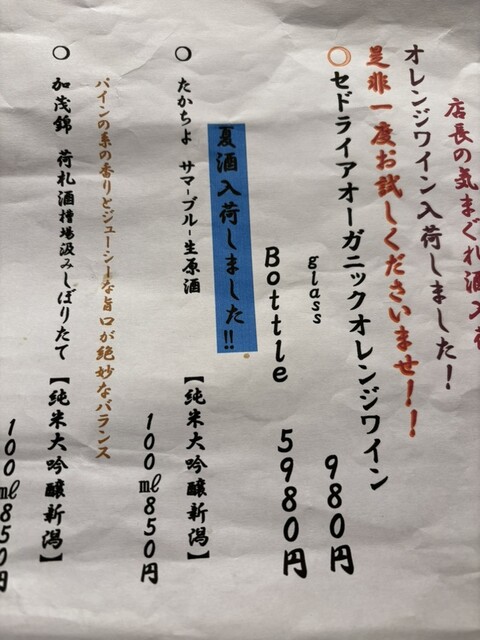 店長の気まぐれ酒入荷
オレンジワイン入荷しました!
是非一度お試しくださいませ!!
○セドライアオーガニックオレンジワイン
glass 980円
Bottle 5980円
夏酒入荷しました!!
○たかちよ サマーブルー生原酒 【純米大吟醸新潟】
100㎖850円
パインの系の香りとジューシーな旨口が絶妙なバランス
○加茂錦 荷札酒槽場汲みしぼりたて 【純米大吟醸新潟】
100㎖850円